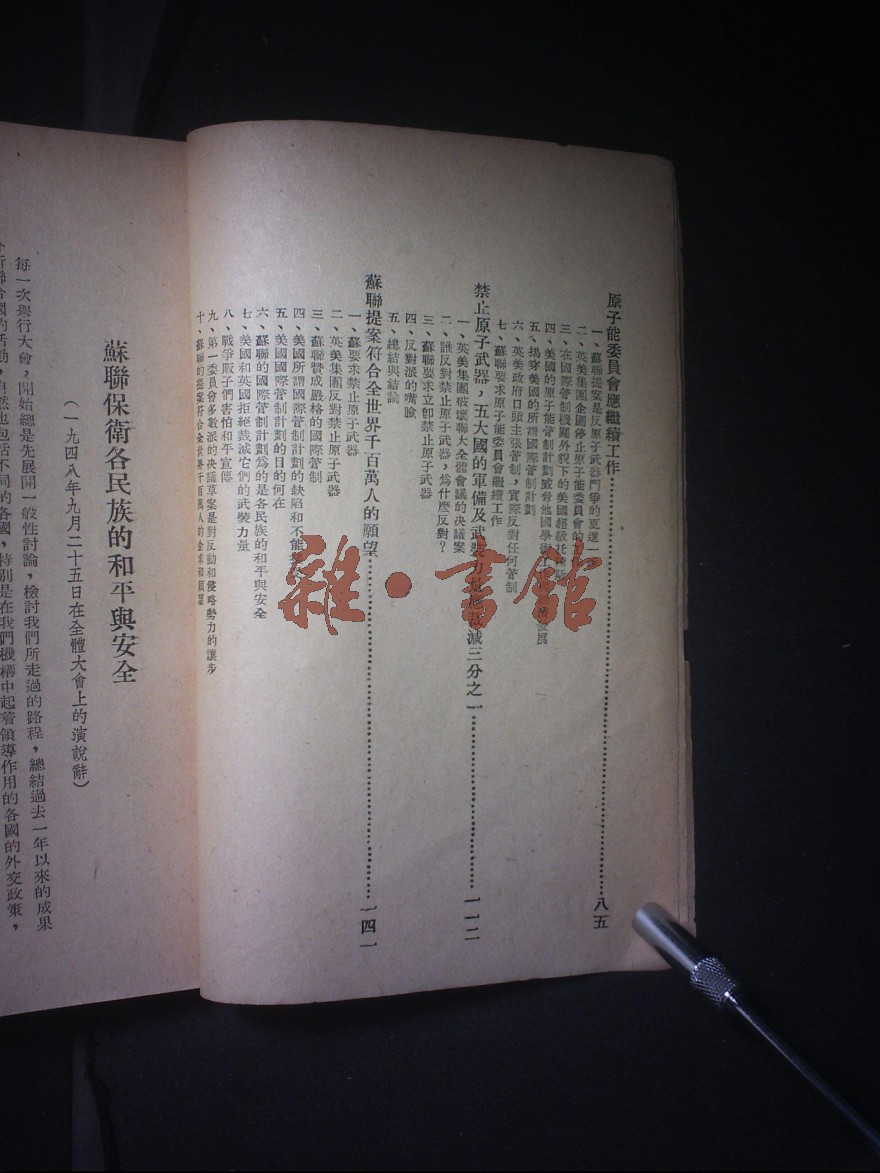 原子能委員會應繼續工作……八五
一、蘇聯提案是反原子武器鬥爭的更進一
二、英美集團企圖停止原子能委員會的
三、在國際管制機關外貌下的美國超級托
四、美國的原子能管制計劃威脅他國學 展
五、揭穿美國的所謂國際管制計劃
六、英美政府口頭主張管制，實際反對任何管制
七、蘇聯要求原子能委員會繼續工作
禁止原子武器，五大國的軍備及武裝力量應裁減三分之一……一一二
一、英美集團破壞聯大全體會議的決議案
二、誰反對禁止原子武器，爲什麼反對？
三、蘇聯要求立卽禁止原子武器
四、反對派的嘴臉
五、總結與結論
蘇聯提案符合全世界千百萬人的願望……一四一
一、蘇要求禁止原子武器
二、英美集團反對禁止原子武器
三、蘇聯贊成嚴格的國際管制
四、美國所謂國際管制計劃的缺陷和不能
五、美國國際管制計劃的目的何在
六、蘇聯的國際管制計劃爲的是各民族的和平與安全
七、美國和英國拒絕裁減它們的武裝力量
八、戰爭販子們害怕和平宣傳
九、第一委員會多數派的決議草案是對反動和侵略勢力的讓步
十、蘇聯的提案符合全世界千百萬人的企求和願望
蘇聯保衛各民族的和平與安全
（一九四八年九月二十五日在全體大會上的演說辭）
每一次舉行大會，開始總是先展開一般性討論，檢討我們所走過的路程，總結過去一年以來的成果
聯合國的活動，自然也包括不同的各國，特別是在我們機構中起着領導作用的各國的外交政策，
雜·書館